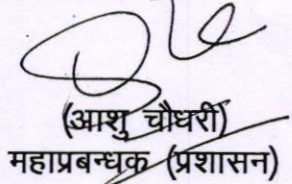 (आशु चौधरी)
महाप्रबन्धक (प्रशासन)